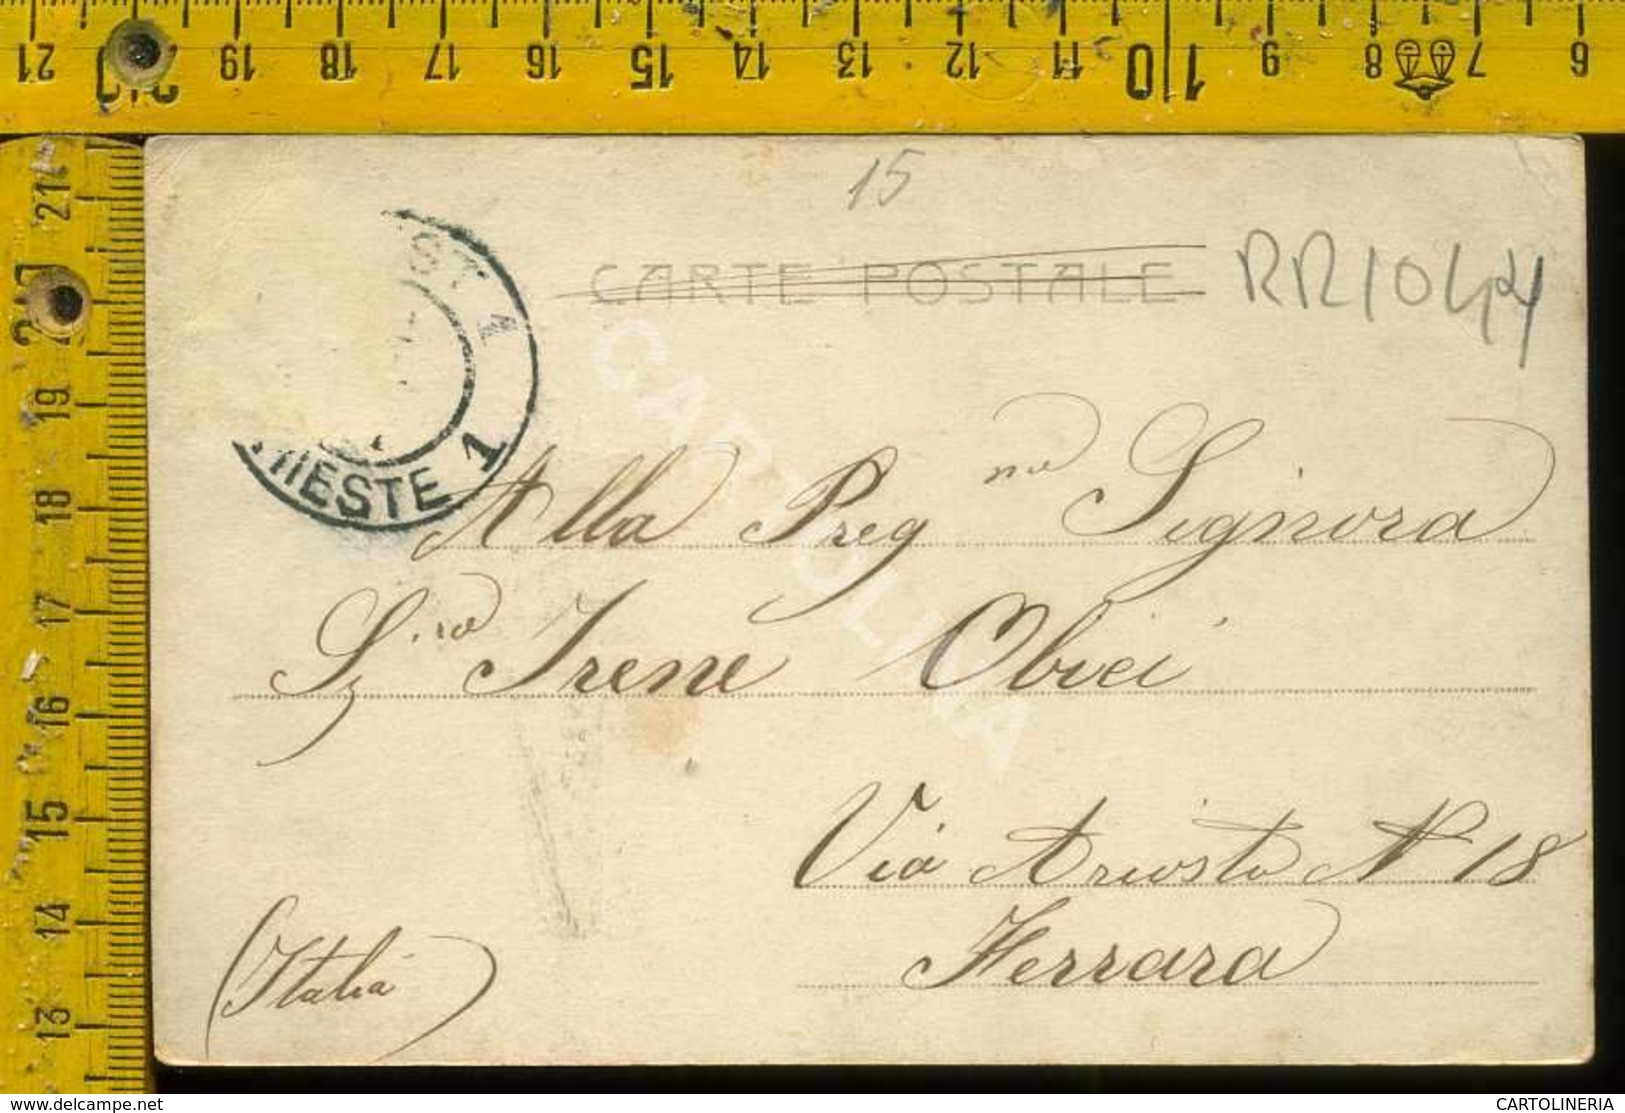 21 19 18 17 16 15 14 13 12 11 10 9 8 7 6
21
19
18
17
16
15
14
13
15
CARTE POSTALE
RR1044
ST 1
RIESTE 1
Alla Preg ma Signora
Sig.ra Irene Obici
Via Ariosto N 18
Ferrara
(Italia)
CARTOLINA
www.delcampe.net
CARTOLINERIA